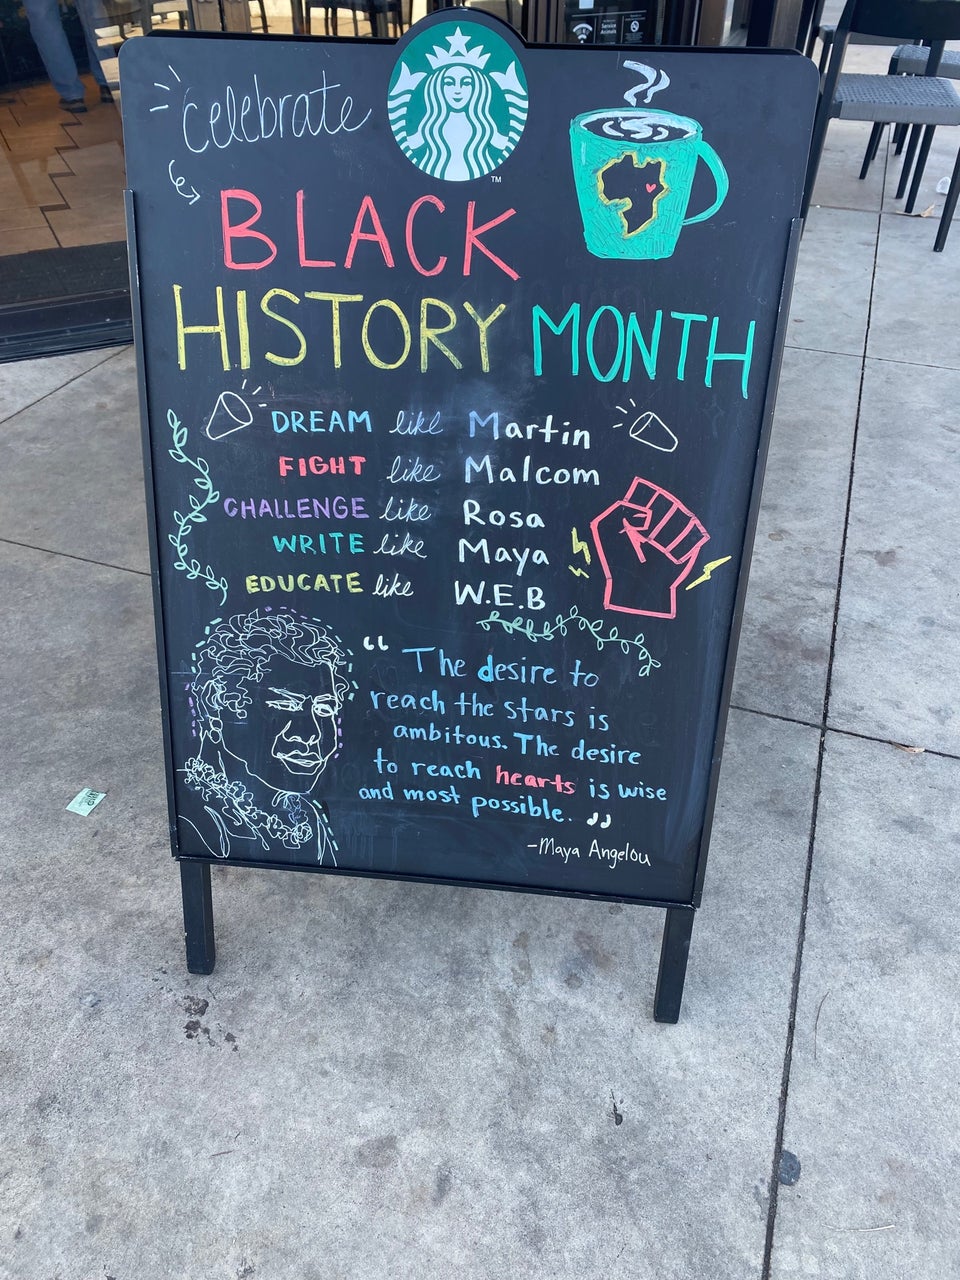 celebrate
BLACK
HISTORY MONTH
DREAM like Martin
FIGHT like Malcom
CHALLENGE like Rosa
WRITE like Maya
EDUCATE like W.E.B
“ The desire to
reach the stars is
ambitous. The desire
to reach hearts is wise
and most possible. ”
-Maya Angelou
TM
Service
Animals